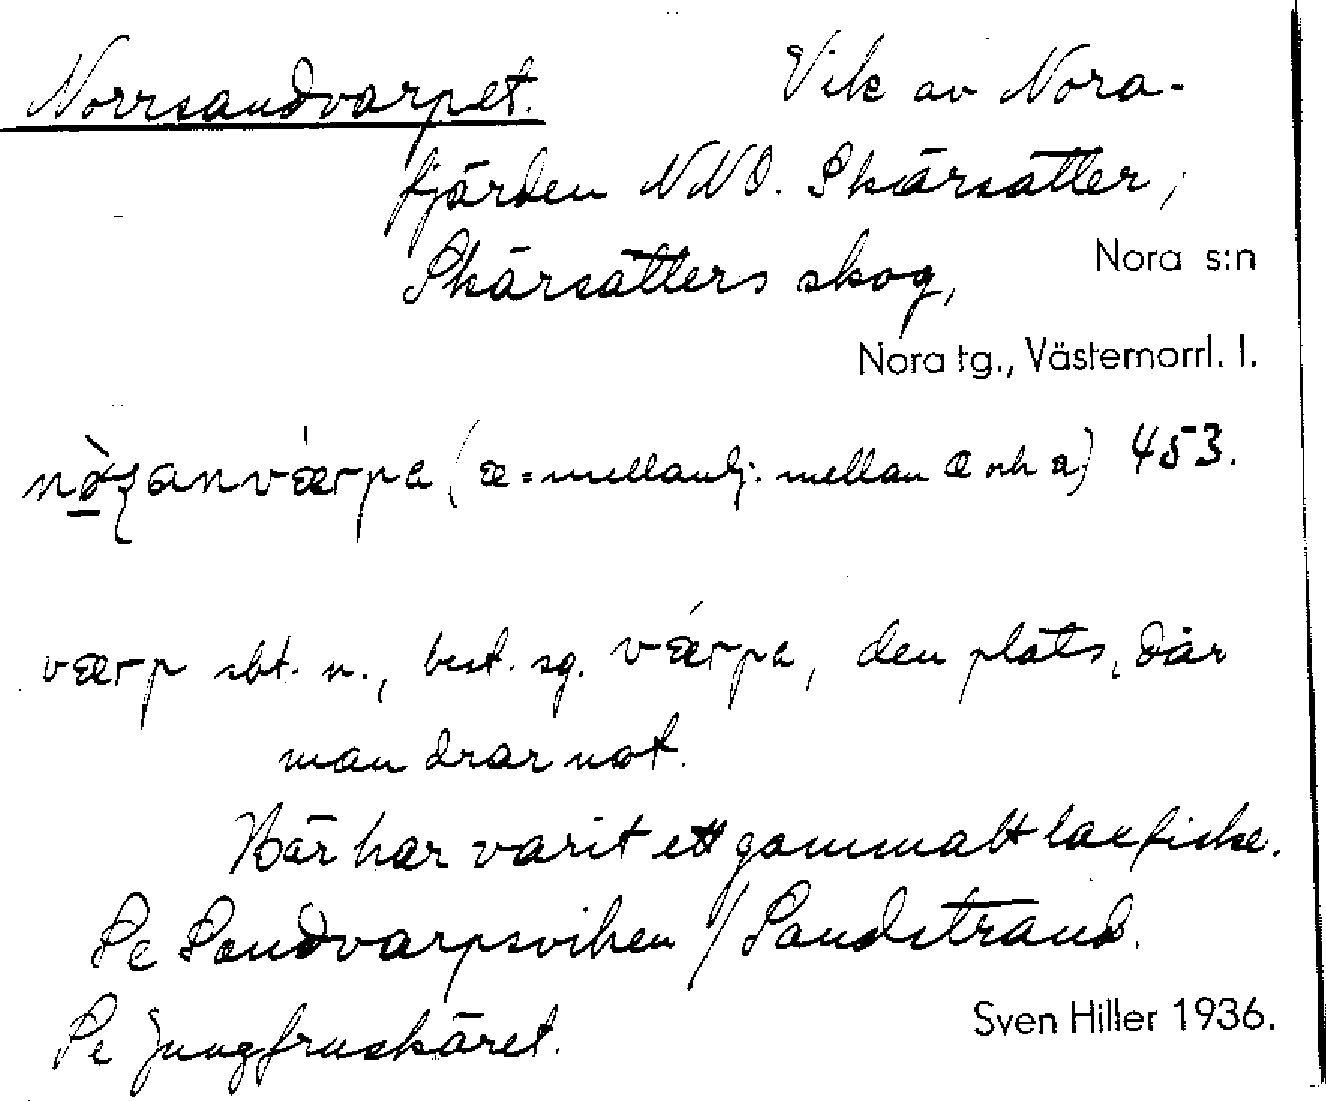 Norrsandvarpet. Vik av Nora-
fjärden NNO. Skärsätter,
Skärsätters skog, Nora s:n
Nora tg., Västernorrl. l.
(æ = mellanlj. mellan æ och a) 453.
værp sbt. n., best. sg. vǽrpa, den plats, där
man drar not.
Här har varit ett gammalt laxfiske.
Se Sandvarpsviken / Sandstrand.
Se Jungfruskäret.
Sven Hiller 1936.